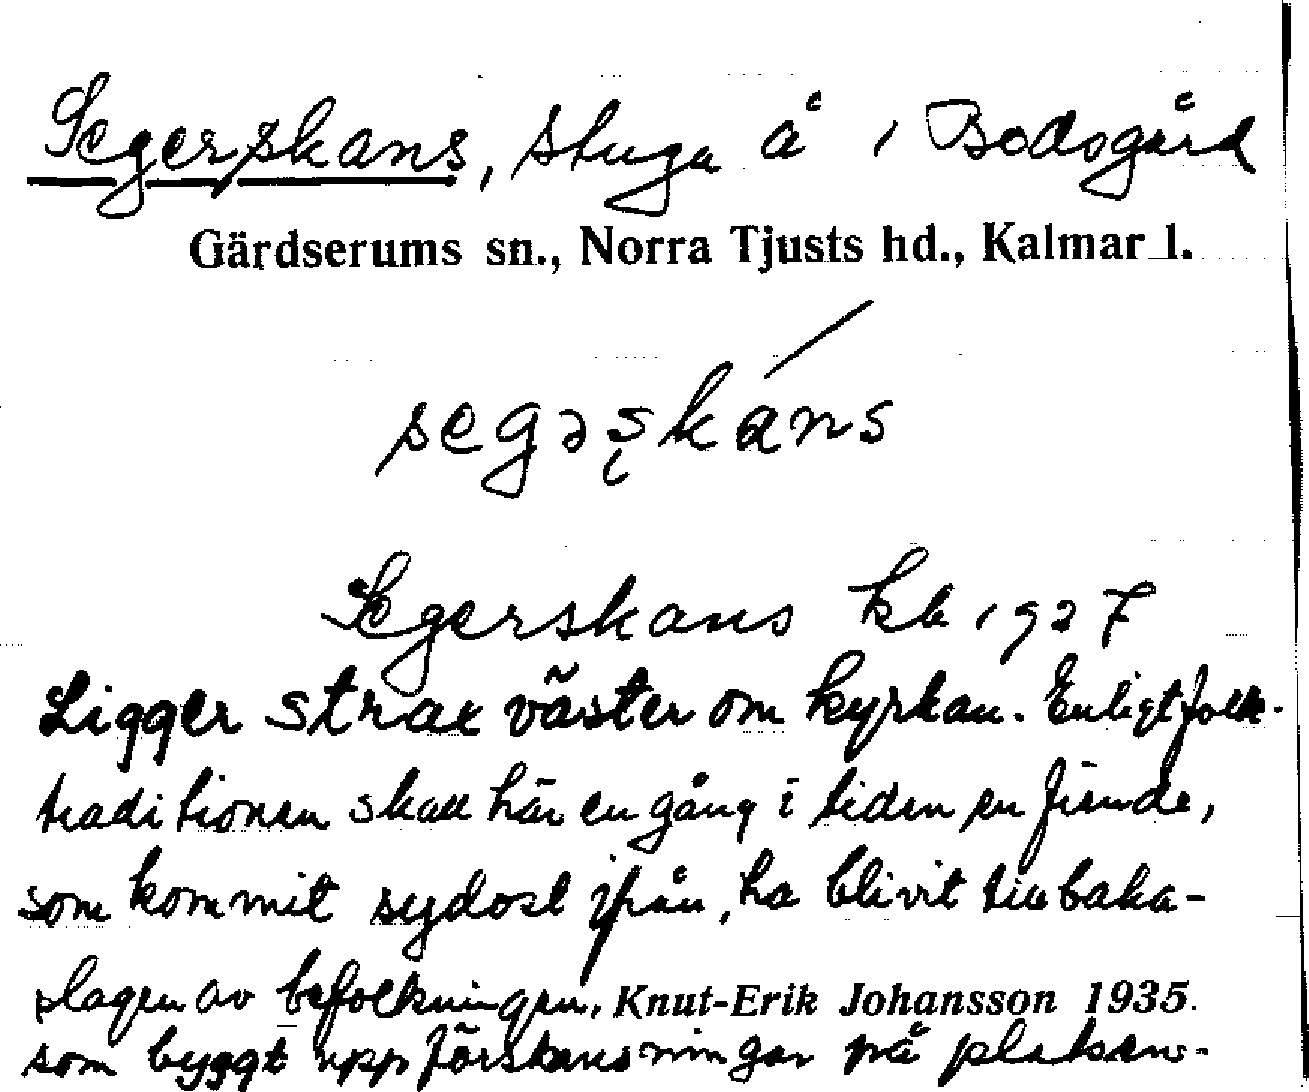 Segerskans, stuga å i Bodsgård
Gärdserums sn., Norra Tjusts hd., Kalmar l.
segəşkáns
Segerskans kb 1927
Ligger strax väster om kyrkan. Enligt folk-
traditionen skall här en gång i tiden en fiende,
som kommit sydost ifrån, ha blivit tillbaka-
slagen av befolkningen, Knut-Erik Johansson 1935.
som byggt upp förskansningar på platsen.-